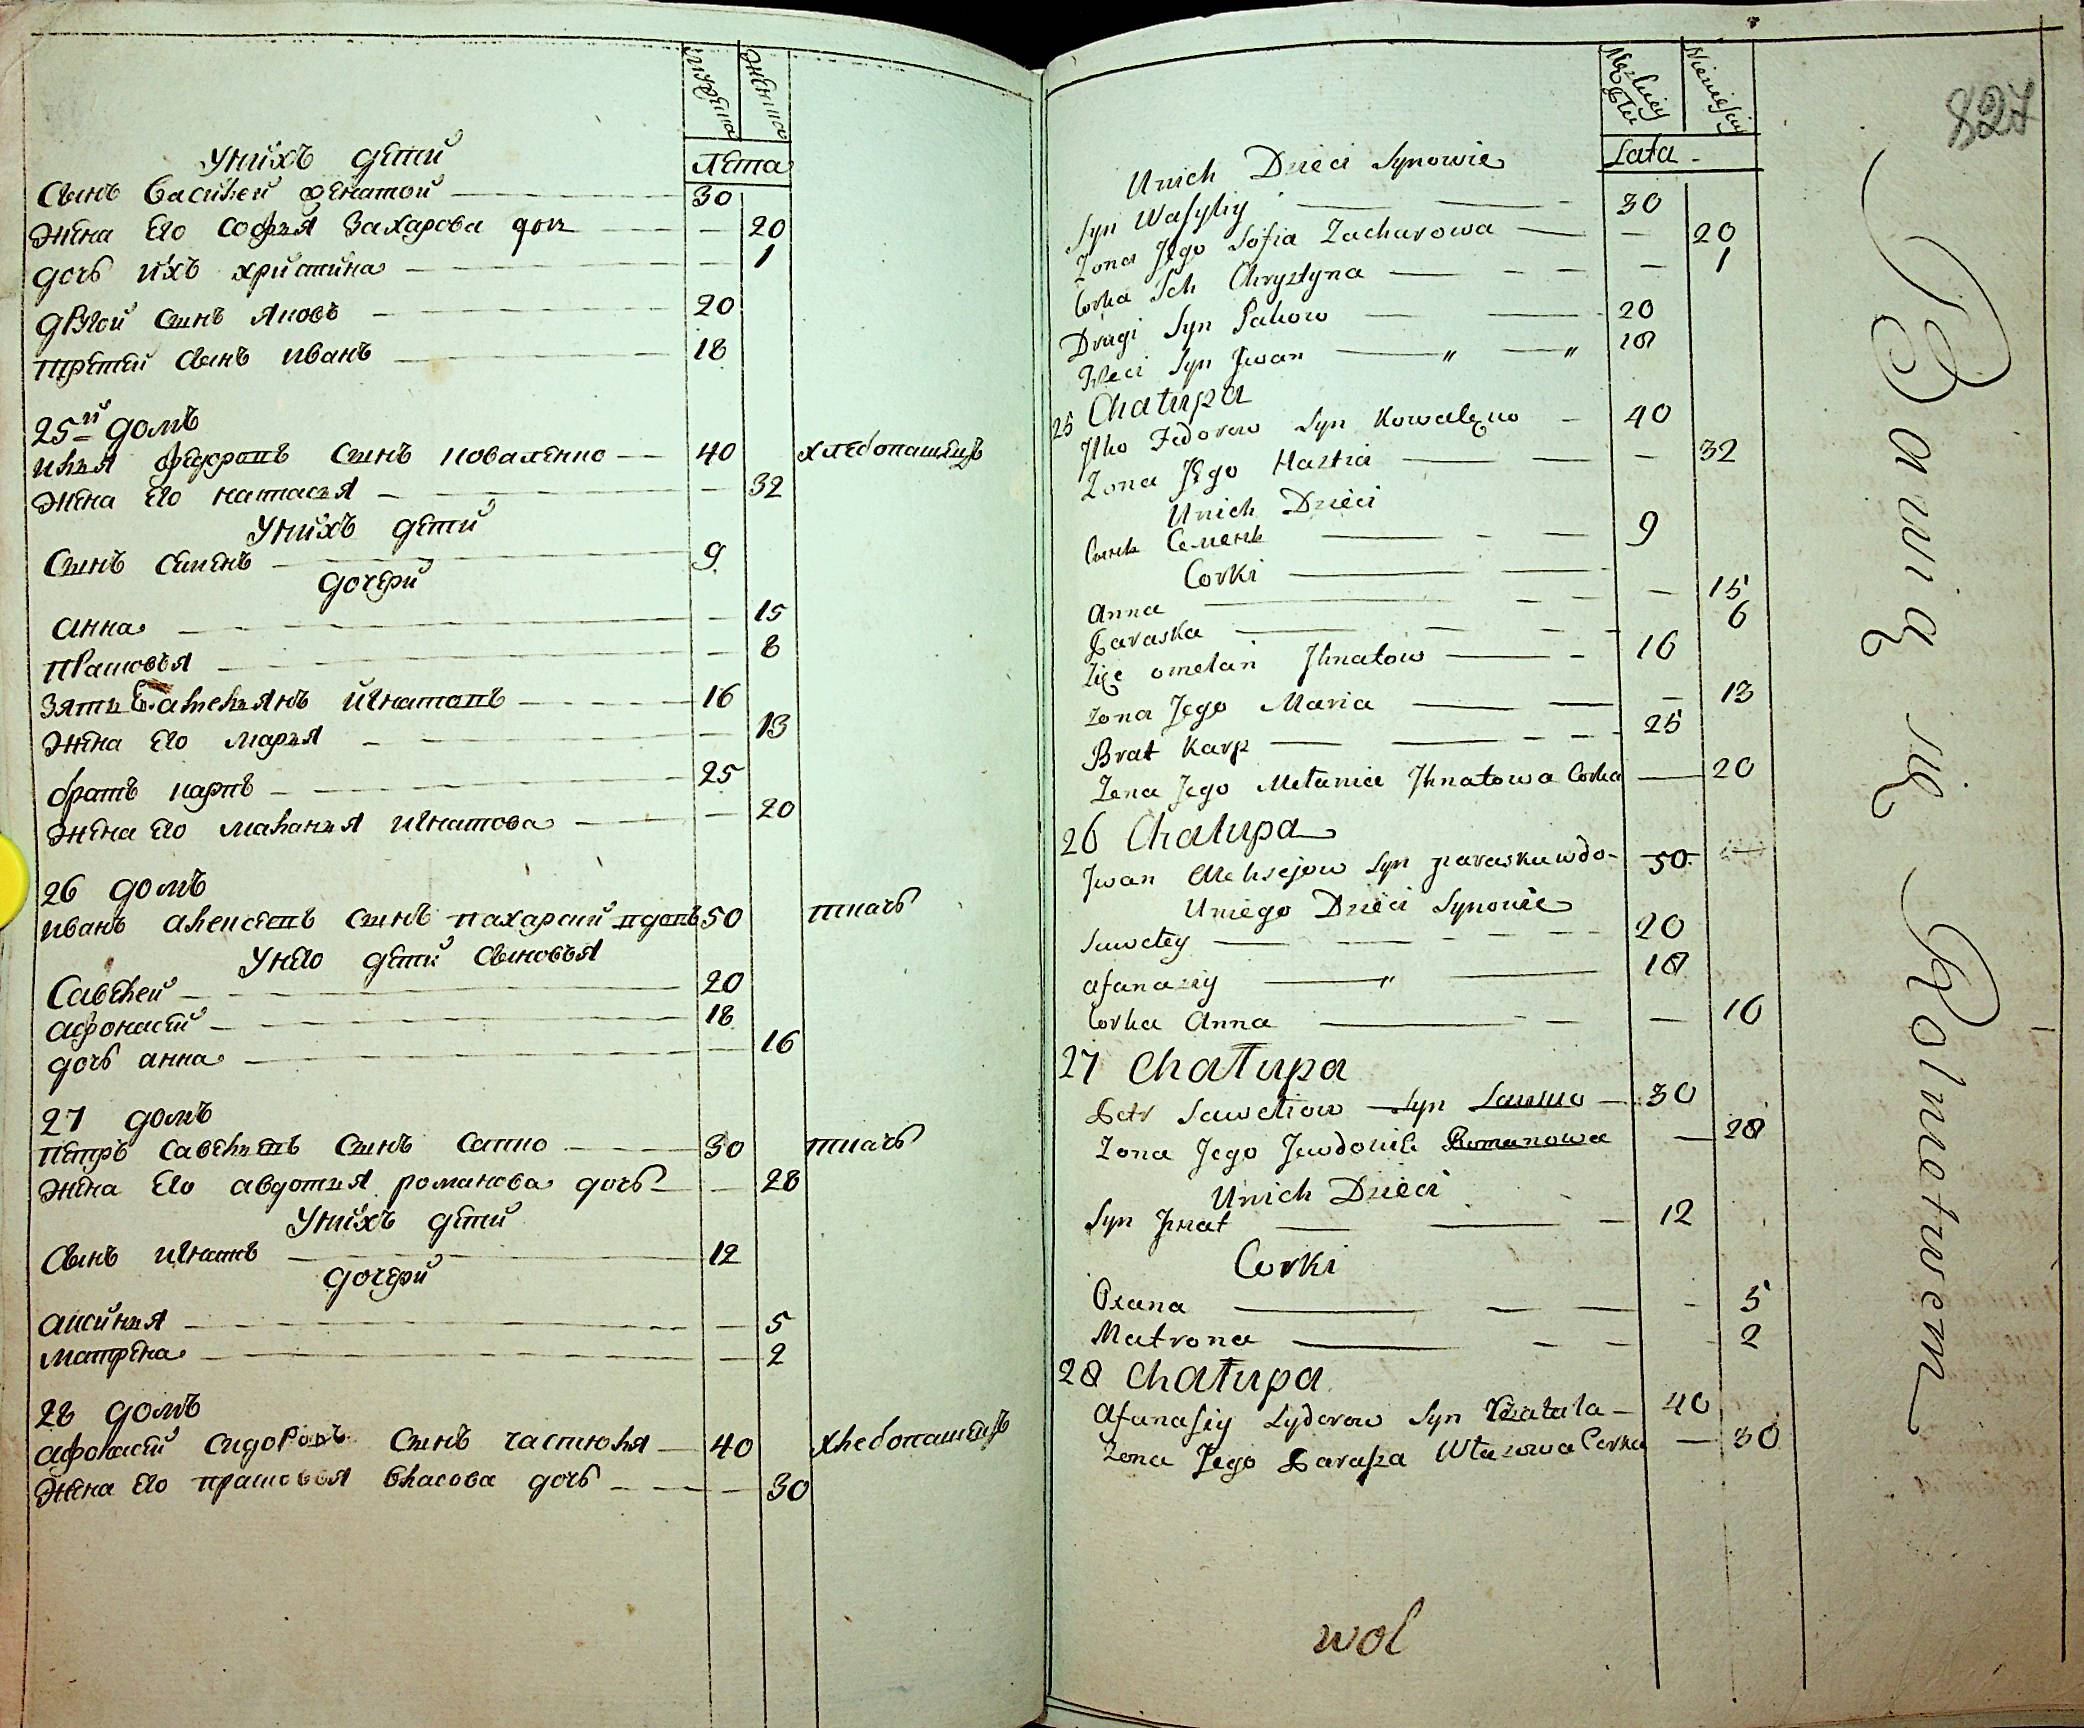 мужеска
женска
Лета
У них дети
Сынъ василей женатой 30
Жена его софия захарова доч 20
дочь ихъ христина 1
другой сынъ яковъ 20
третей сынъ иванъ 18
25й домъ
илия федоровъ сынъ коваленко 40 хлебопашецъ
жена его настасия 32
У нихъ дети
Сынъ семенъ 9
дочери
анна 15
прасковья 8
зять игнатовъ 16
жена его мария 13
братъ карпъ 25
жена его малания игнатова 20
26 домъ
иванъ алексеевъ сынъ вдовъ 50 ткачь
У него дети сыновья
Савелей 20
афонасей 18
дочь анна 16
27 домъ
петръ савельевъ сынъ савко 30 ткачь
жена его авдотия романова дочь 28
У нихъ дети
Сынъ игнатъ 12
дочери
аксиния 5
матрена 2
28 домъ
афонасей сидоровъ сынъ 40 хлебопашецъ
жена его прасковья власова дочь 30
827
Męzkiey Płci
Niewieściey
Lata
Unich Dzieci Synowie
Syn Wasyliy 30
Zona Jego Sofia Zacharowa 20
Corka Ich Chrystyna 1
Drugi Syn Jakow 20
Trzeci Syn Jwan 18
25 Chatupa
Jlko Fedorow Syn Kowalęko 40
Zona Jego Nastia 32
Unich Dzieci
Сынъ Семенъ 9
Corki
Anna 15
Paraska 6
Zięc omelan Jhnatow 16
Zona Jego Maria 13
Brat Karp 25
Zona Jego Melania Jhnatowa Corka 20
26 Chatupa
Jwan Aleksejow Syn 50
Uniego Dzieci Synowie
Saweley 20
afanaziy 18
Corka Anna 16
27 Chatupa
Petr Saweliow Syn Sawko 30
Zona Jego Jewdokia Romanowa 28
Unich Dzieci
Syn Jhnat 12
Corki
Oxana 5
Matrona 2
28 Chatupa
Afanasiy Sydorow Syn 40
Zona Jego Paraska Własowa Corka 30
Bawią się Rolnictwem
wol